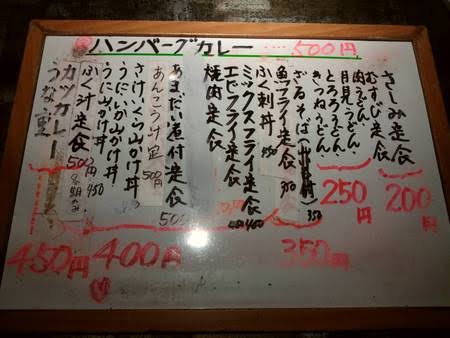 ハンバーグカレー ……500円
さしみ定食
むすび定食
200円
肉うどん
月見うどん
とろろうどん
きつねうどん
250円
ざるそば
350
魚フライ定食
350
ふく刺丼
450
350円
ミックスフライ定食
450
エビフライ定食
焼肉定食
あまだい煮付定食
500
あんこう汁定
500円
さけいくら山かけ丼
うにいか山かけ丼
うに山かけ丼
450
400円
ふく汁定食
500円
カツカレー
うな重
450円